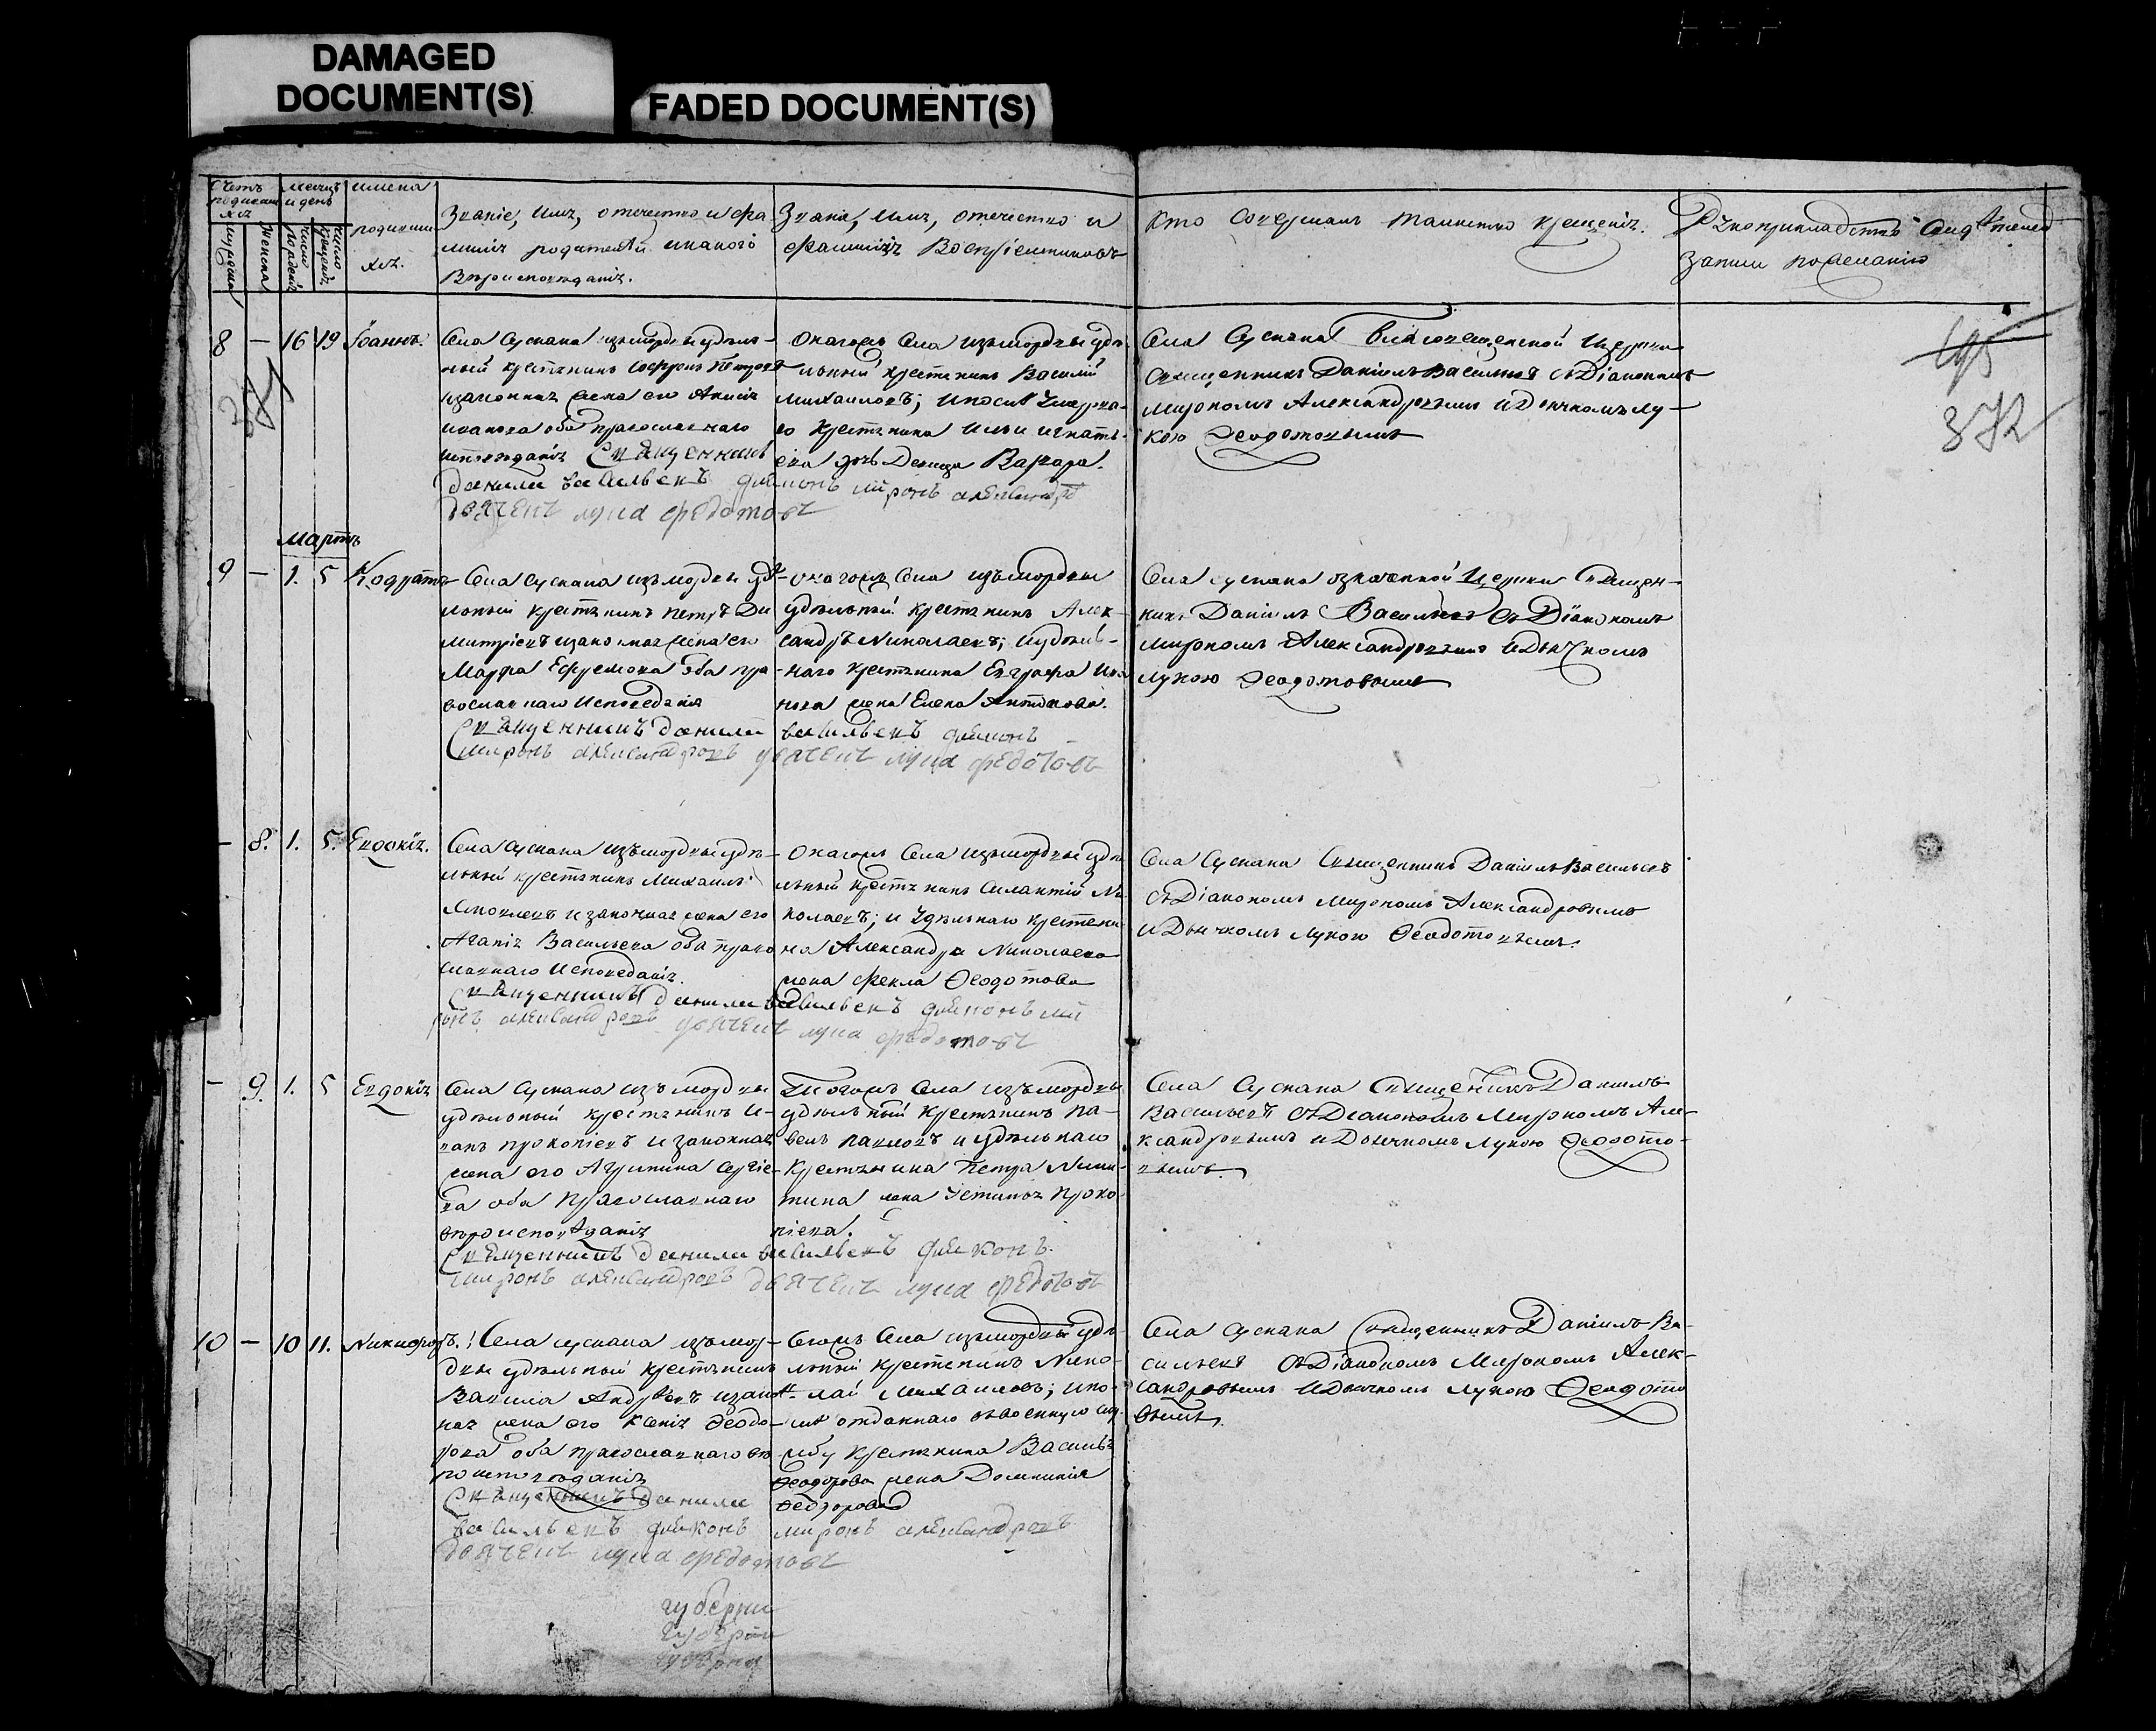 DAMAGED
DOCUMENT(S)
FADED DOCUMENT(S)
Счетъ родившихся
мужеска
женска
месяцъ и день
число рожденія
число крещенія
имена родившихся.
Званіе, имя, отечество и фамилія родителей и какого
Вероисповеданія.
Званіе, имя, отечество и
фамилія Воспріемниковъ
Кто Совершалъ таинство крещенія.
Рукоприкладство Свидетелей
записи по желанію
8 — 16 19 Іоаннъ.
Села Сускана изъ мордвы удель-
ный крестьянинъ Софронъ Петровъ
и законная жена его Анисія
Иванова оба православнаго
исповеданія Священникъ
данила васильевъ диаконъ миронъ александро
дьячекъ лука федотовъ
Онагожъ Села изъ мордвы уде-
льный крестьянинъ Василій
Михайловъ; и после умерша-
го крестьянина Ильи Игнать-
ева дочь Девица Варвара.
Села Сускана Благовещенской Церкви
Священникъ Даніилъ Васильевъ съ Діакономъ
Мирономъ Александровымъ и Дьячкомъ Лу-
кою Феодотовымъ
372
Мартъ
9 — 1. 5 Кодратъ
Села Сускана изъ мордвы уде-
льный крестьянинъ Петръ Ди
митріевъ и законная жена его
Марфа Ефремова оба пра
вославнаго Исповеданія
Священникъ данила васильевъ диаконъ
миронъ александровъ дьячекъ лука федотовъ
онагожъ Села изъ мордвы
удельный крестьянинъ Алек-
сандръ Николаевъ; и удель-
наго крестьянина Евграфа Ива
нова жена Елена Антонова.
Села Сускана означенной Церкви Священ-
никъ Даніилъ Васильевъ съ Діакономъ
Мирономъ Александровымъ и Дьячкомъ
Лукою Феодотовымъ
— 8. 1. 5. Евдокія.
Села Сускана изъ мордвы уде-
льный крестьянинъ Михаилъ
Яковлевъ и законная жена его
Агапія Васильева оба право
славнаго Исповеданія.
Священникъ данила васильевъ диаконъ ми
ронъ александровъ дьячекъ лука федотовъ
Онагожъ Села изъ мордвы уде
льный крестьянинъ Силантій Ни
колаевъ; и Удельнаго крестьяни
на Александра Николаева
жена Фекла Феодотова
Села Сускана Священникъ Даніилъ Васильевъ
съ Діакономъ Мирономъ Александровымъ
и Дьячкомъ Лукою Феодотовымъ.
— 9. 1. 5 Евдокія
Села Сускана изъ мордвы
удельный крестьянинъ И-
ванъ Прокопіевъ и законная
жена его Агрипина Сергіе-
ва оба Православнаго
вероисповеданія
Священникъ данила васильевъ диаконъ.
миронъ александровъ дьячекъ лука федотовъ
Тогожъ Села изъ мордвы
удельный Крестьянинъ Па-
велъ Павловъ и удельнаго
Крестьянина Петра Ники-
тина жена Устинья Проко
піева.
Села Сускана Священникъ Даніилъ
Васильевъ съ Діакономъ Мирономъ Але-
ксандровымъ и Дьячкомъ Лукою Феодото-
вымъ.
10 — 10 11. Никифоръ.
Села Сускана изъ мор-
двы удельный крестьянинъ
Вавила Андреевъ и закон-
ная жена его Ксенія Феодо-
рова оба православнаго ве
роисповеданія
Священникъ данила
васильевъ диаконъ миронъ александровъ
дьячекъ лука федотовъ
Тогожъ Села изъ мордвы уде-
льный крестьянинъ Нико-
лай Михайловъ; и по-
сле отданнаго въ военную слу-
жбу крестьянина Василья
Феодорова жена Домникія
Федорова
Села Сускана Священникъ Даніилъ Ва-
сильевъ съ Діакономъ Мирономъ Алек-
сандровымъ и Дьячкомъ Лукою Феодото
вымъ.
губерни
губерни
губерни